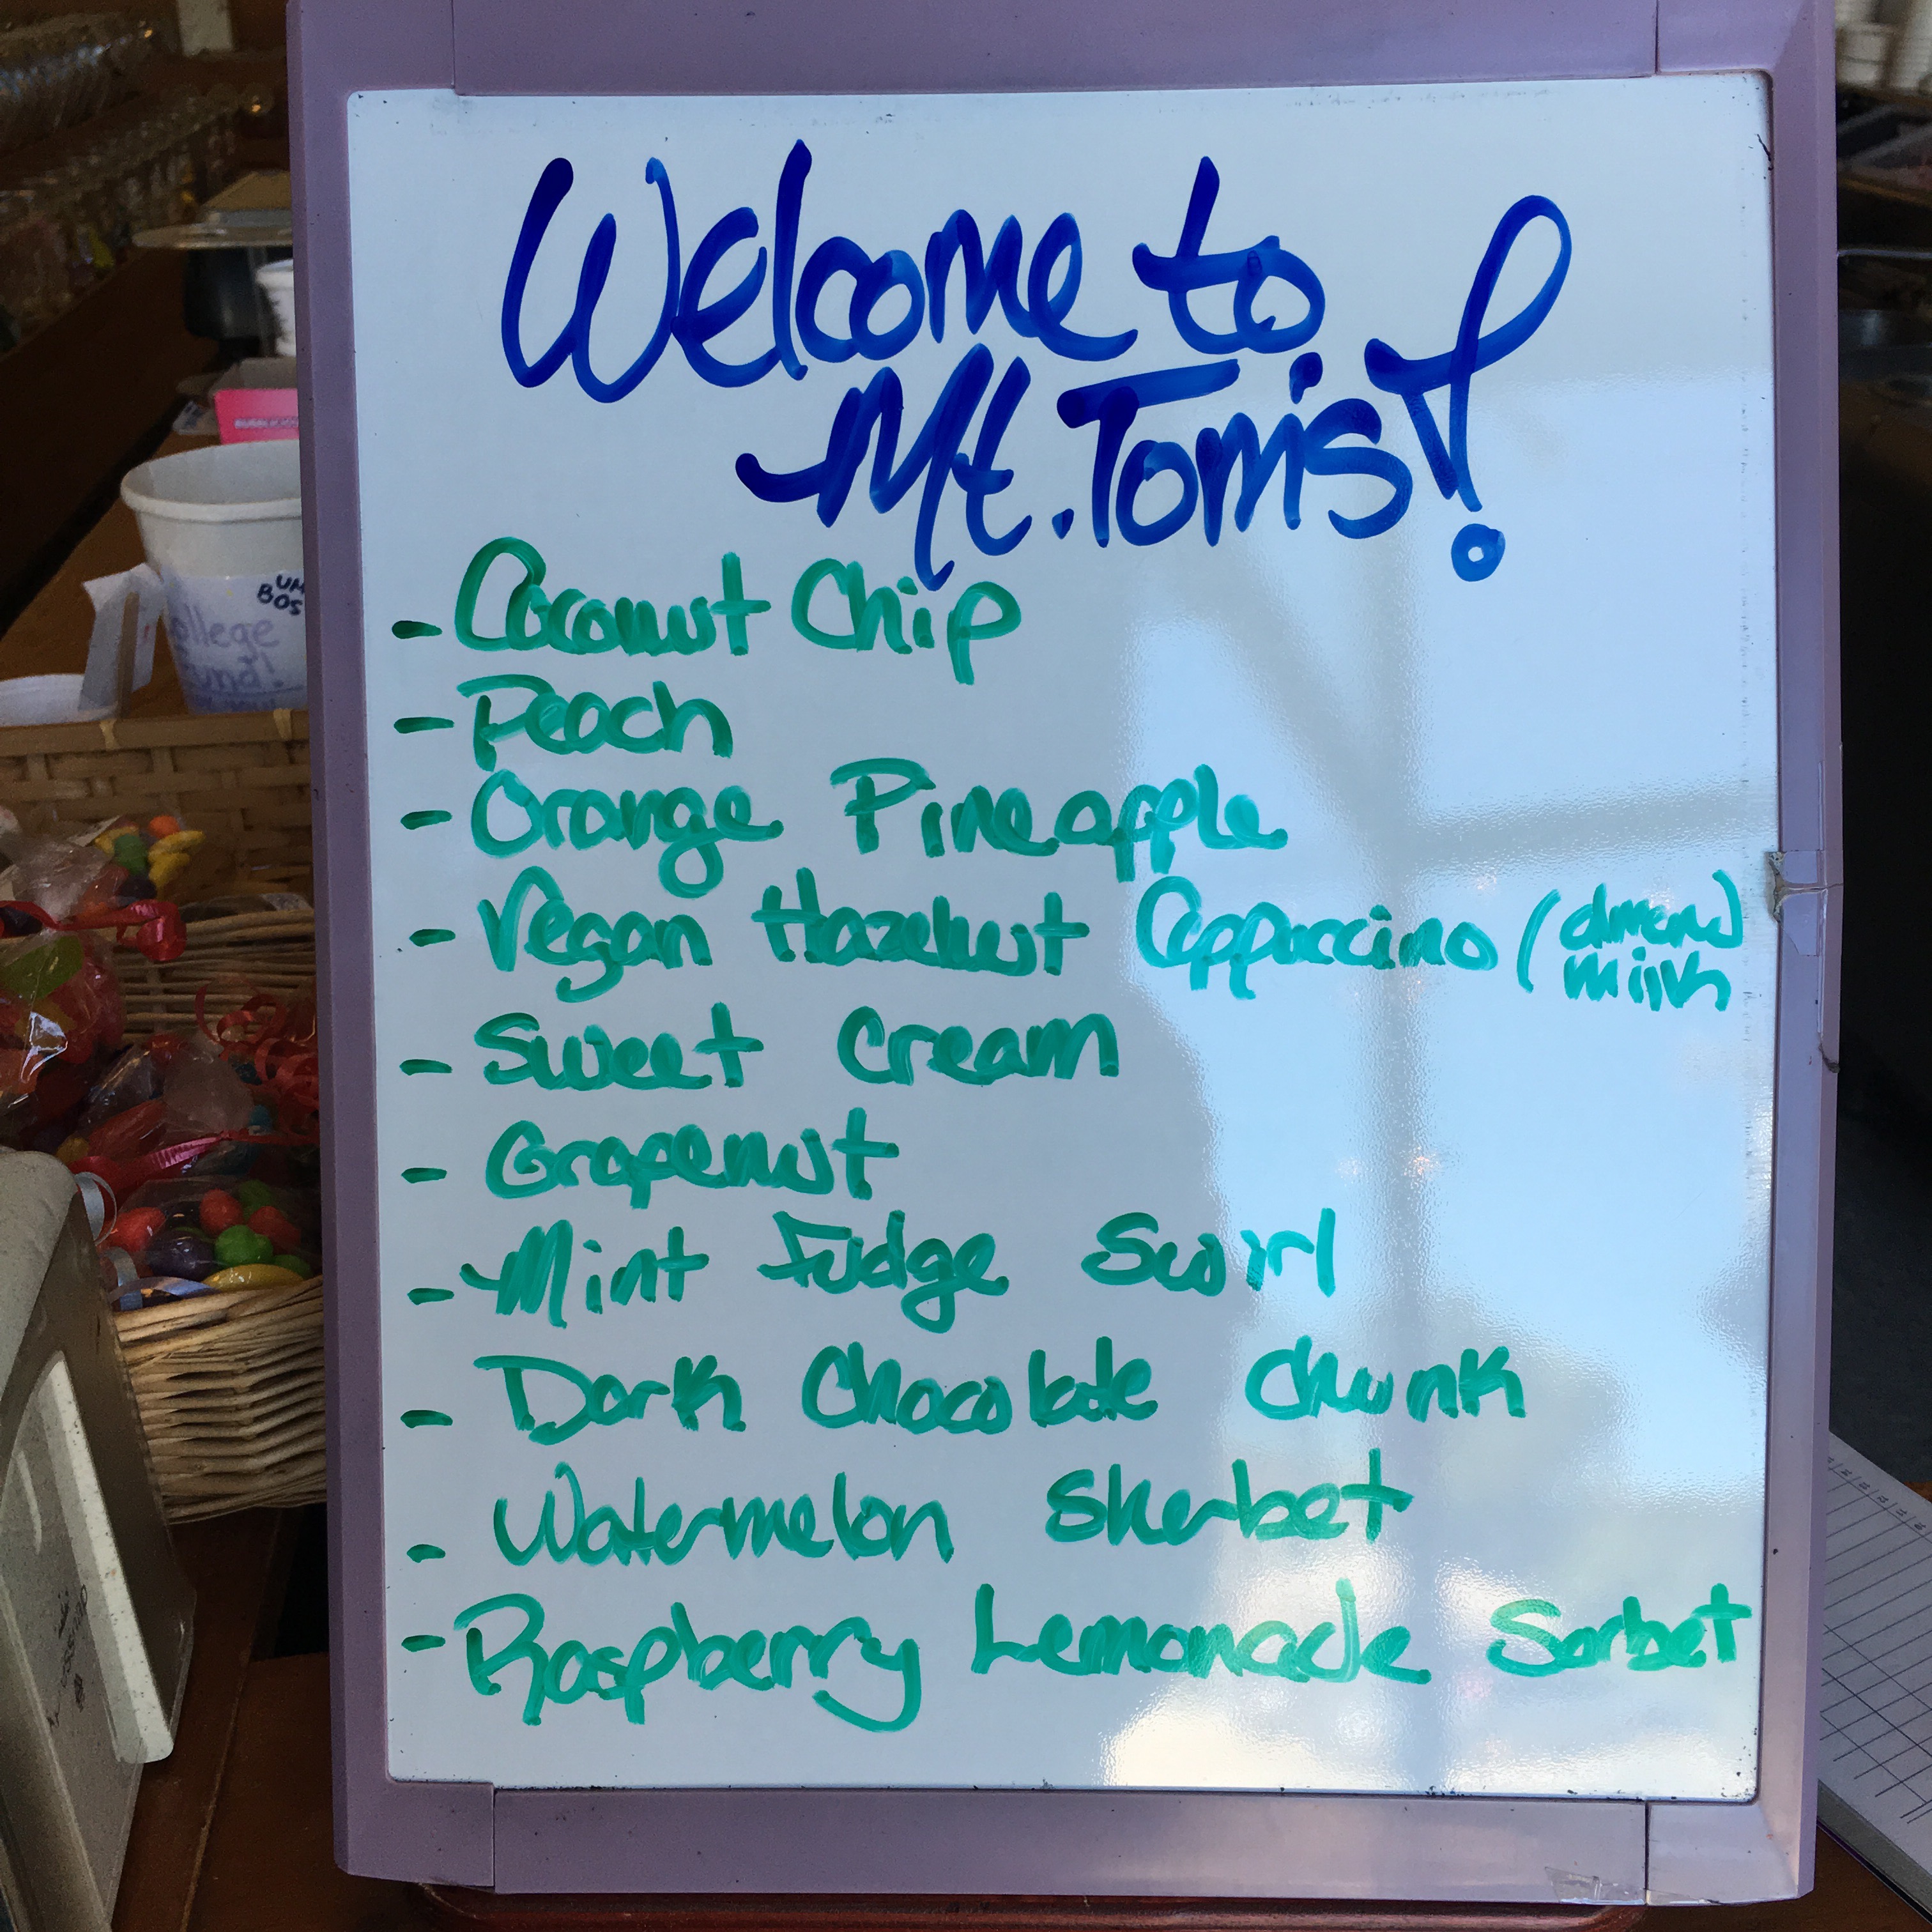 Welcome to
Mt. Tom's!
- Coconut Chip
- Peach
- Orange Pineapple
- Vegan Hazelnut Cappuccino (almond
milk
- Sweet Cream
- Grapenut
- Mint Fudge Swirl
- Dark Chocolate Chunk
- Watermelon Sherbet
- Raspberry Lemonade Sorbet
UM
BOS
ollege
und!